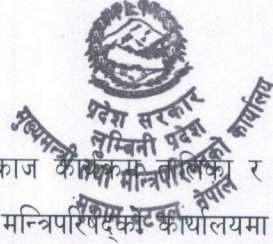 प्रदेश सरकार
लुम्बिनी प्रदेश
मुख्यमन्त्री तथा मन्त्रिपरिषद्को कार्यालय
नेपाल
काज र
मन्त्रिपरिषद्को कार्यालयमा